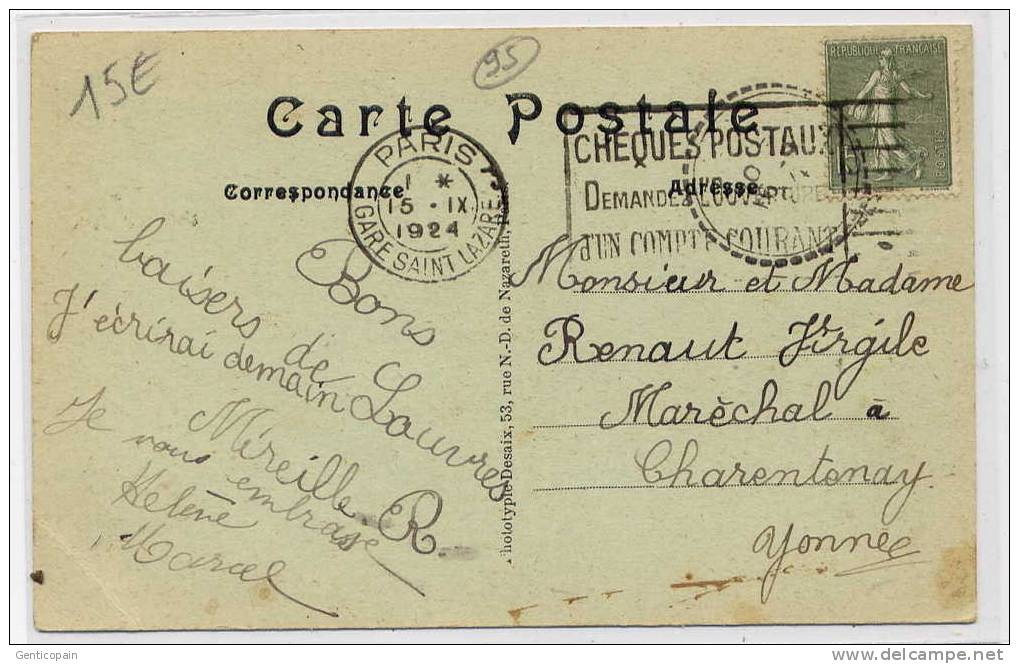 15€
95
Carte Postale
RÉPUBLIQUE FRANÇAISE
POSTES
PARIS
1 *
15 - IX
1924
GARE SAINT LAZARE
CHEQUES POSTAUX
DEMANDEZ L'OUVERTURE
d'UN COMPTE COURANT
Correspondance
Adresse
Bons
baisers de Louvres
J'écrirai demain
Mireille. R.
Je vous embrasse
Helène
Marcel
Phototypie Desaix, 53, rue N.-D. de Nazareth,
Monsieur et Madame
Renaut Virgile
Maréchal à
Charentenay
Yonne
Genticopain
www.delcampe.net